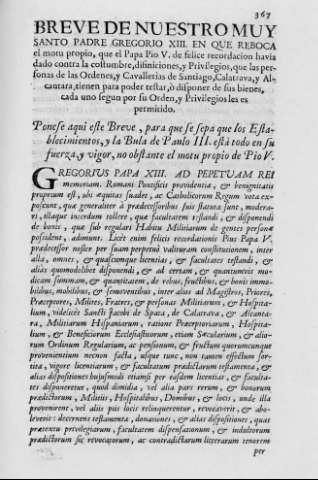 367
BREVE DE NUESTRO MUY
SANTO PADRE GREGORIO XIII. EN QUE REBOCA
el motu propio, que el Papa Pio V. de felice recordacion havia
dado contra la costumbre, difiniciones, y Privilegios, que las per-
sonas de las Ordenes, y Cavallerias de Santiago, Calatrava, y Al-
cantara, tienen para poder testar, ò disponer de sus bienes,
cada uno segun por su Orden, y Privilegios les es
permitido.
Ponese aqui este Breve, para que se sepa que los Esta-
blecimientos, y la Bula de Paulo III. està todo en su
fuerza, y vigor, no obstante el motu propio de Pio V.
GREGORIUS PAPA XIII. AD PERPETUAM REI
memoriam. Romani Pontificis providentia, & benignitatis
proprium est, ubi æquitas suadet, ac Catholicorum Regum vota ex-
poscunt, quæ generaliter à prædecessoribus suis statuta sunt, modera-
ri, illaque interdum tollere, quæ facultatem testandi, & disponendi
de bonis, quæ sub regulari Habitu Militarium de gentes personæ
possident, adimunt. Licèt enim felicis recordationis Pius Papa V.
prædecessor noster per suam perpetuò valituram constitutionem, inter
alia, omnes, & quascumque licentias, & facultates testandi, &
alias quomodolibet disponendi, & ad certam, & quantumvis mo-
dicam summam, & quantitatem, de rebus, fructibus, & bonis immo-
bilibus, mobilibus, & semoventibus, inter alias ad Magistros, Priores,
Præceptores, Milites, Fratres, & personas Militiarum, & Hospita-
lium, videlicèt Sancti Jacobi de Spata, de Calatrava, & Alcanta-
ra, Militiarum Hispaniarum, ratione Præceptoriarum, Hospita-
lium, & Beneficiorum Ecclesiasticorum, etiam Sæcularium, & alio-
rum Ordinum Regularium, ac pensionum, & fructuum quorumcunque
provenientium necnon facta, usque tunc, non tamen effectum sor-
tita, vigore licentiarum, & facultatum prædictarum testamenta, &
alias dispositiones hujusmodi etiamsi per easdem licentias, & faculta-
tes disponeretur, quod dimidia, vel alia pars rerum, & bonorum
prædictorum, Militiis, Hospitalibus, Domibus, & locis, unde illa
provenirent, vel aliis piis locis relinquerentur, revocaverit, & abo-
leverit: decernens testamenta, donationes, & alias dispositiones, quas
prætextu privilegiorum, facultatum dispensationum, & indultorum
prædictorum sic revocatorum, ac contradictarum litterarum tenorem
per